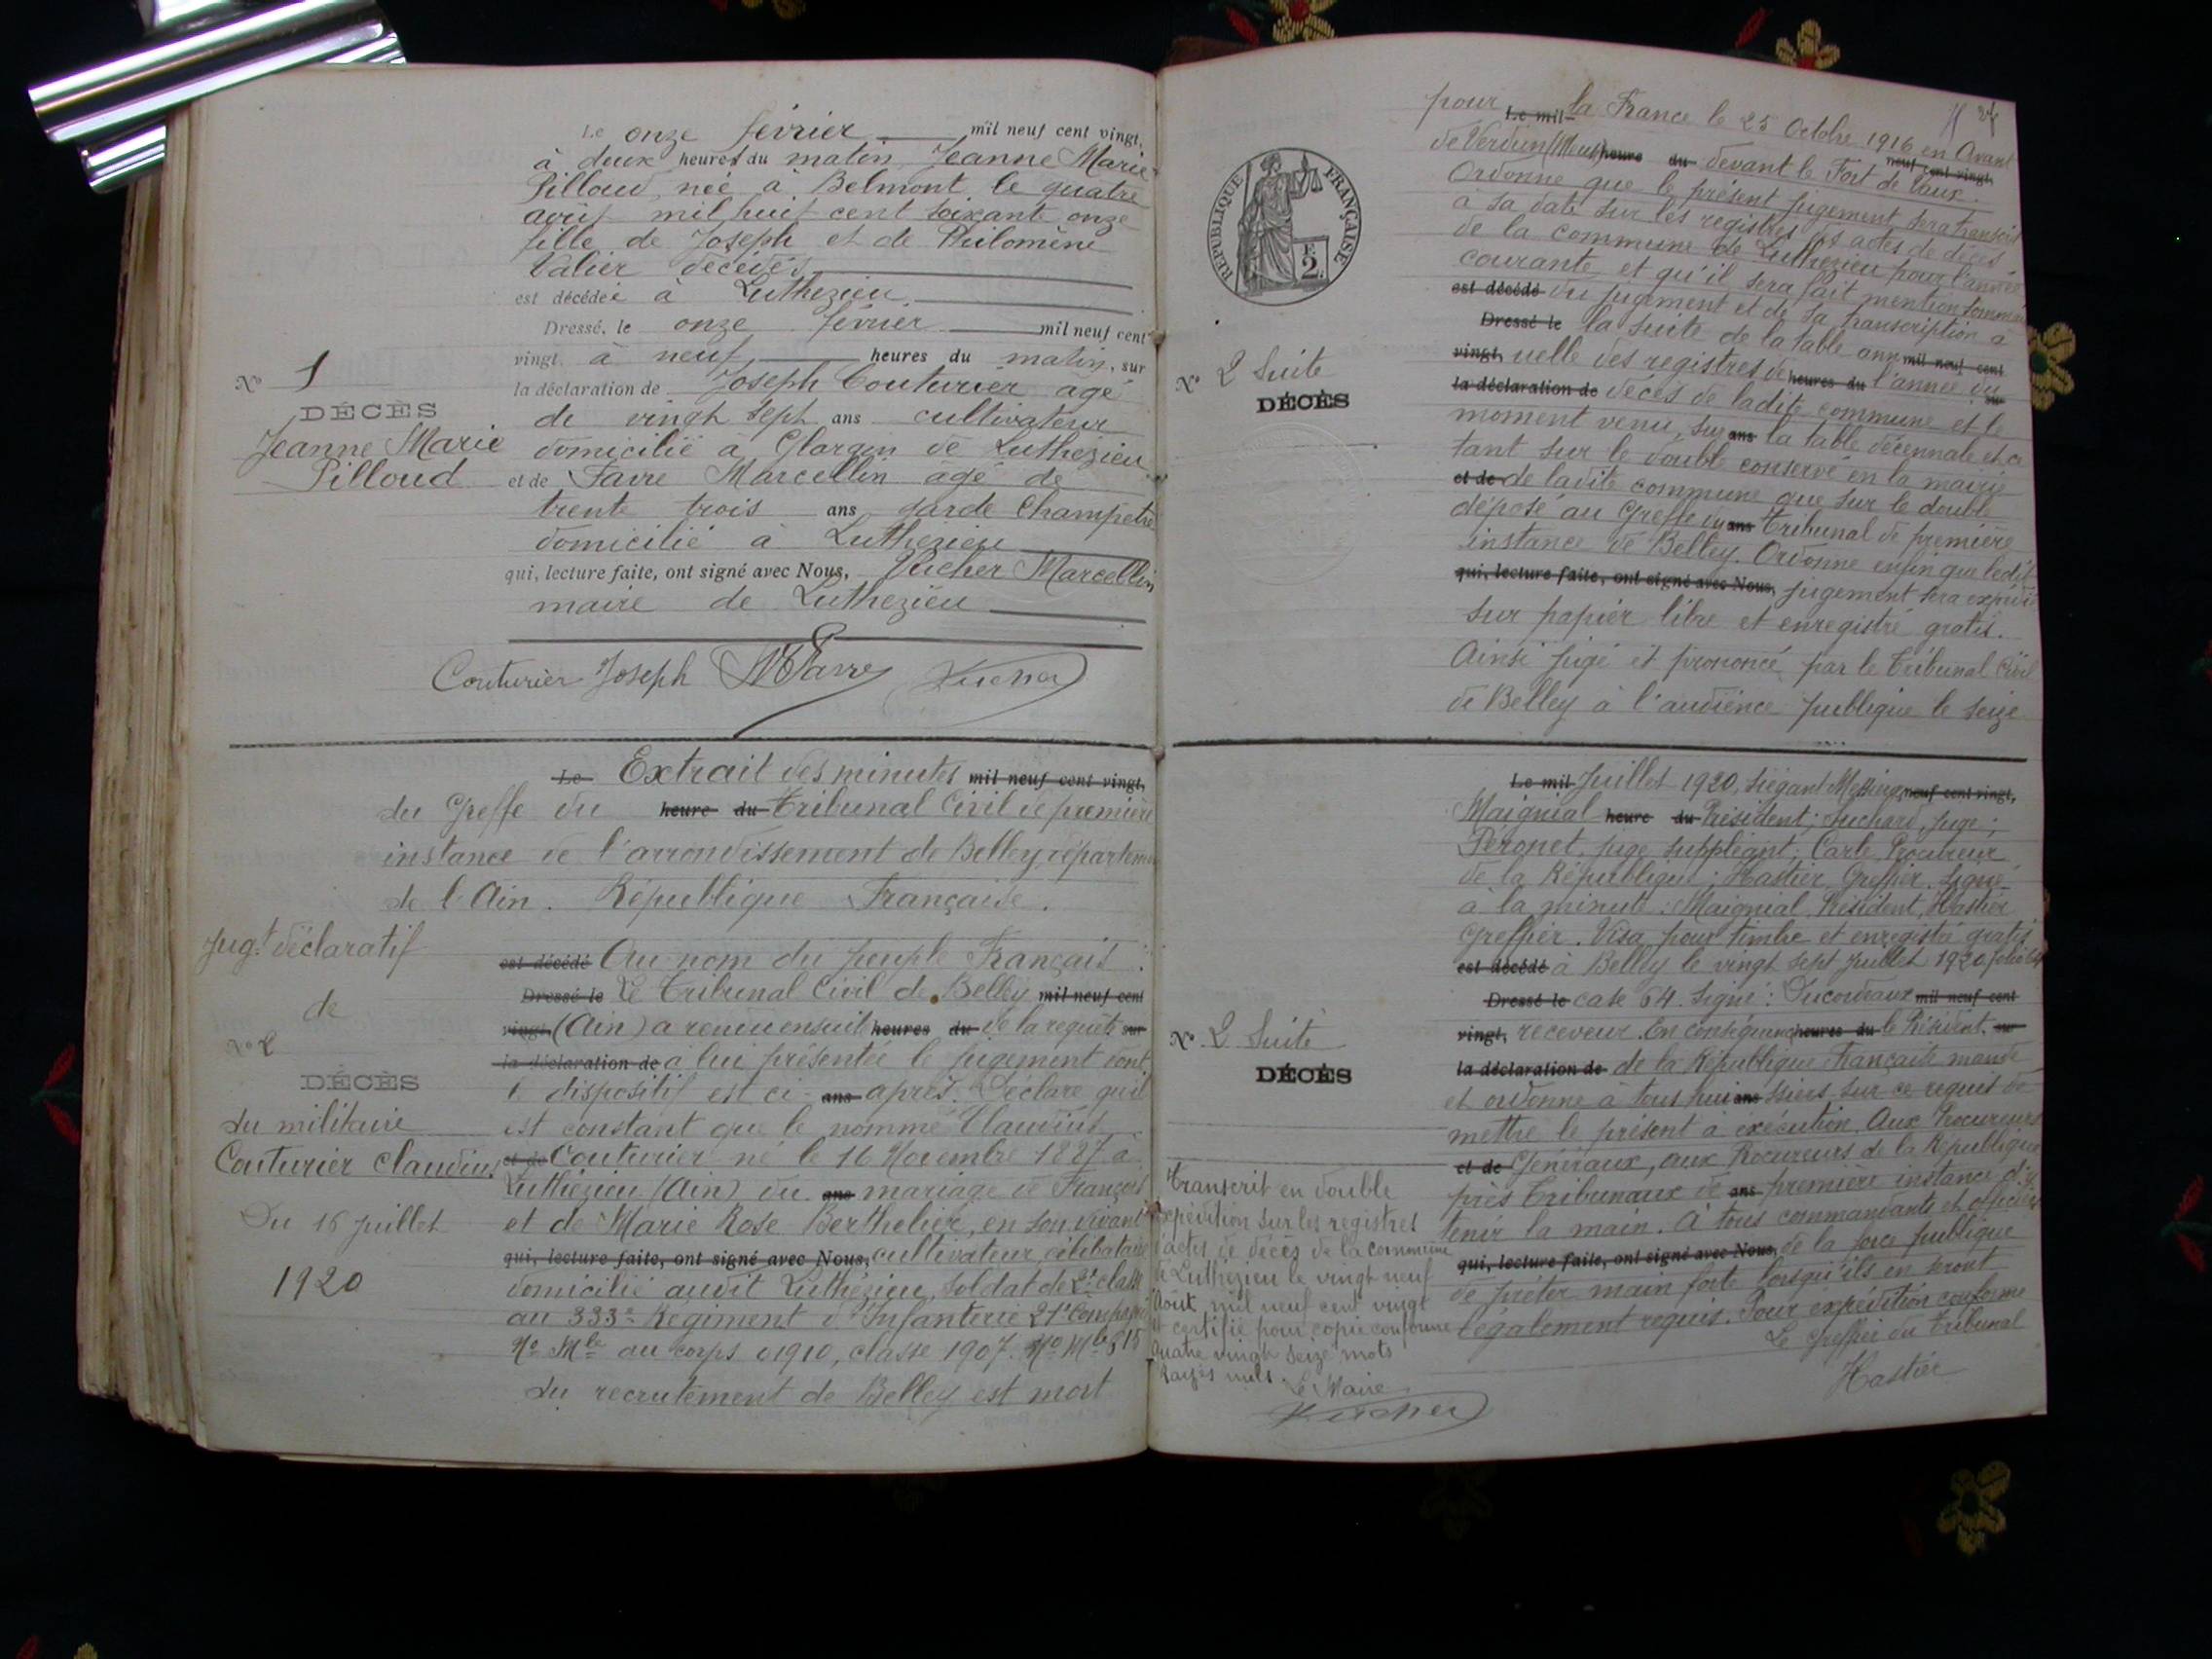 Le onze février mil neuf cent vingt,
à deux heures du matin, Jeanne Marie
Pilloud, née à Belmont le quatre
août mil huit cent soixante onze
fille de Joseph et de Philomène
Valier décédés
est décédée à Luthezieu
Dressé, le onze février mil neuf cent
vingt, à neuf heures du matin, sur
la déclaration de Joseph Couturier agé
de vingt sept ans cultivateur
domicilié à de Luthezieu
et de Favre Marcellin agé de
trente trois ans, garde Champetre
domicilié à Luthezieu
qui, lecture faite, ont signé avec Nous, Marcellin
maire de Luthezieu
No 1
DÉCÈS
Jeanne Marie
Pilloud
Couturier Joseph Favre
Le Extrait des minutes mil neuf cent vingt,
du Greffe du heure du Tribunal Civil de première
instance de l'arrondissement de Belley, département
de l'Ain. République Française.
est décédé Au nom du peuple Français.
Dressé le Le Tribunal Civil de Belley mil neuf cent
vingt, (Ain) a rendu ensuite heures du de la requête sur
la déclaration de à lui présentée le jugement dont
le dispositif est ci- ans après. Déclare qu'il
est constant que le nommé Claudius
et de Couturier né le 16 Novembre 1887 à
Luthézieu (Ain) du ans mariage de François
et de Marie Rose Berthelier, en son vivant
qui, lecture faite, ont signé avec Nous, cultivateur, célibataire
domicilié audit Luthézieu, soldat de 2e classe
au 333e Régiment d'Infanterie 21e Compagnie
No Mle au corps 01910, classe 1907. No Mle 615
du recrutement de Belley est mort
Jugt déclaratif
de
No 2
DÉCÈS
du militaire
Couturier Claudius
Du 16 juillet
1920
pour Le mil la France le 25 Octobre 1916 en Avant
neuf cent vingt,
de Verdun (Meuse) heure du devant le Fort de Vaux.
Ordonne que le présent jugement sera transcrit
à sa date sur les registres des actes de décès
de la commune de Luthezieu pour l'année
courante, et qu'il sera fait mention sommaire
est décédé du jugement et de sa transcription à
Dressé le la suite de la table ann mil neuf cent
vingt, uelle des registres de heures du l'année du sur
la déclaration de décès de ladite commune et le
moment venu, sur ans la table décennale et ce
tant sur le double conservé en la mairie
et de de ladite commune que sur le double
déposé au Greffe du ans Tribunal de première
instance de Belley. Ordonne enfin que ledit
qui, lecture faite, ont signé avec Nous, jugement sera expédié
sur papier libre et enregistré gratis.
Ainsi jugé et prononcé par le Tribunal Civil
de Belley à l'audience publique le seize
RÉPUBLIQUE FRANÇAISE
F.
2
No 2 Suite
DÉCÈS
Le mil Juillet 1920, siégeant Messieurs neuf cent vingt,
Maignial heure du Président; Juchard, Juge;
Peronet, juge suppléant; Carle Procureur
de la République; Hastier Greffier. Signé
à la minute: Maignial Président, Hastier
Greffier. Visa pour timbre et enregistré gratis
est décédé à Belley le vingt sept juillet 1920 folio 64
Dressé le case 64. Signé: mil neuf cent
vingt, receveur. En conséquence heures du le Président sur
la déclaration de de la République Française mande
et ordonne à tous hui ans ssiers sur ce requis de
mettre le présent à exécution. Aux Procureurs
et de Généraux, aux Procureurs de la République
près Tribunaux de ans première instance d'y
tenir la main. A tous commandants et officiers
qui, lecture faite, ont signé avec Nous, de la force publique
de prêter main forte lorsqu'ils en seront
légalement requis. Pour expédition conforme
Le Greffier du Tribunal
Hastier
No 2 Suite
DÉCÈS
Transcrit en double
expédition sur les registres
d'actes de décès de la commune
de Luthézieu le vingt neuf
Août mil neuf cent vingt
et certifié pour copie conforme
quatre vingt seize mots
rayés nuls.
Le Maire